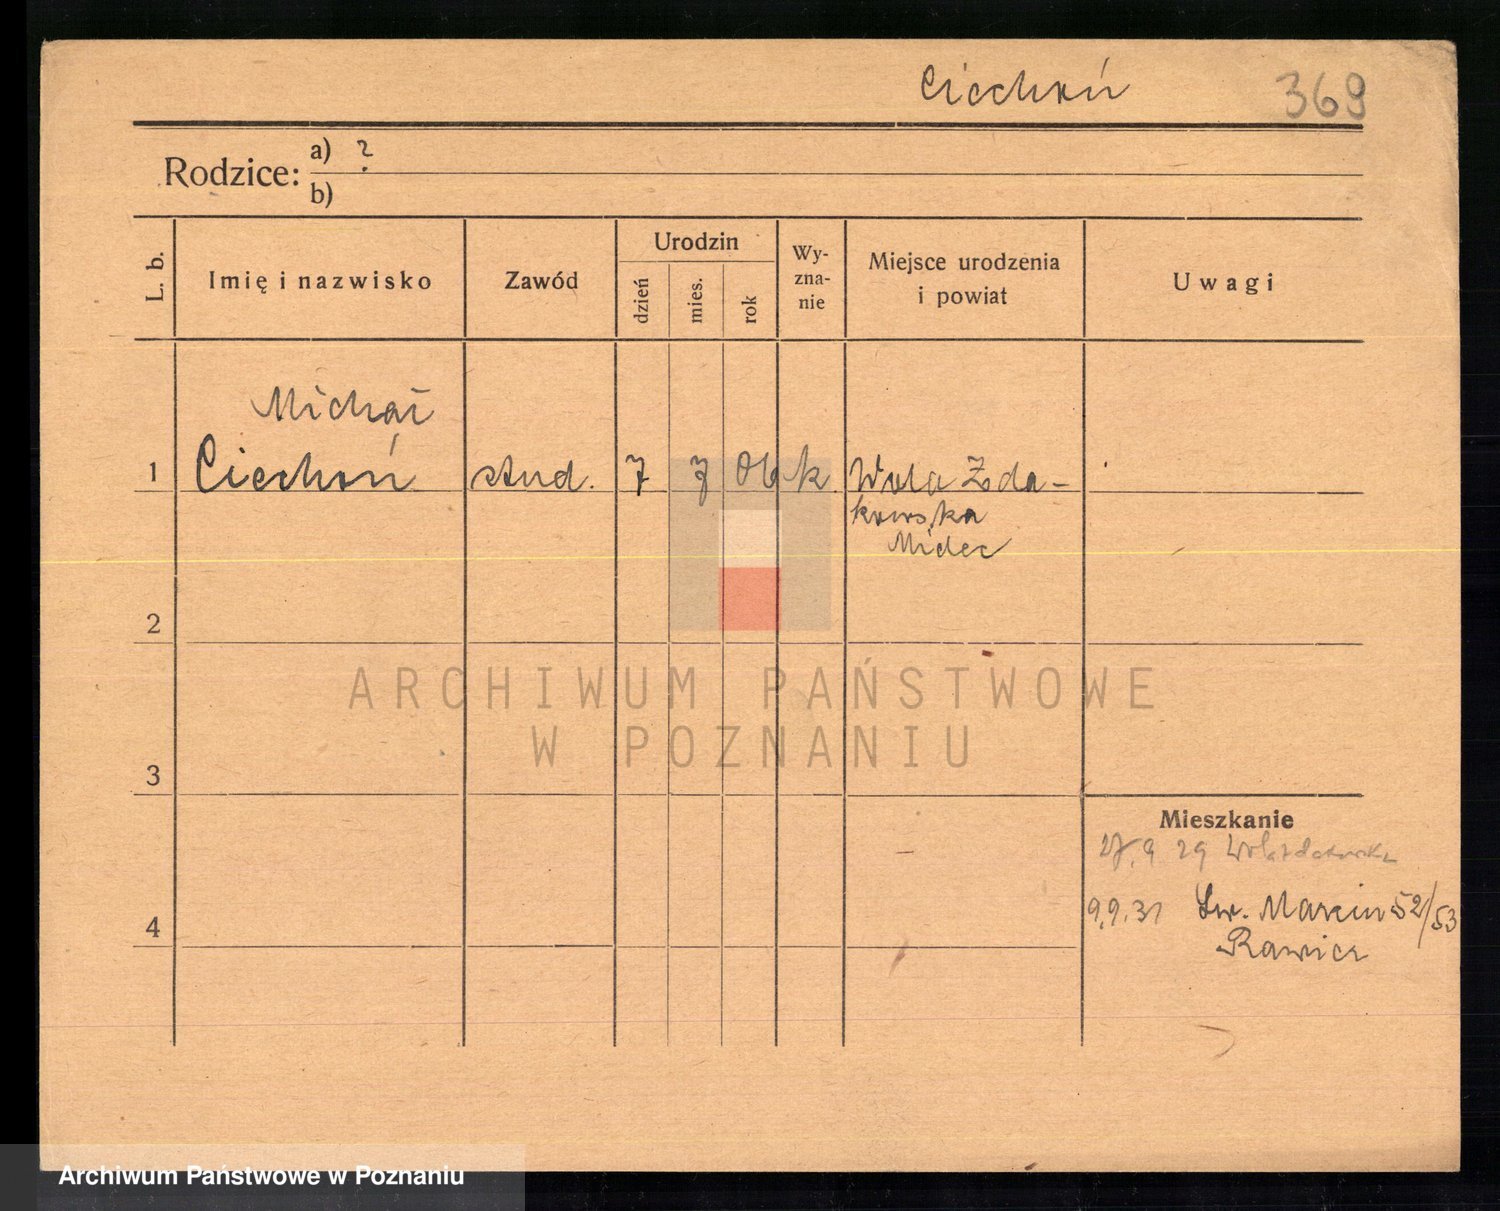 Ciechoń 369
Rodzice: a) ?
b)
L. b.
Imię i nazwisko
Zawód
Urodzin
dzień
mies.
rok
Wy-
zna-
nie
Miejsce urodzenia
i powiat
Uwagi
Michał
1 Ciechoń stud. 7 7 06 k Wola Zda-
kowska
Midec
2
ARCHIWUM PAŃSTWOWE
W POZNANIU
3
Mieszkanie
27.9 29
9.9.31 Św. Marcin 52/53
4
Rawicz
Archiwum Państwowe w Poznaniu